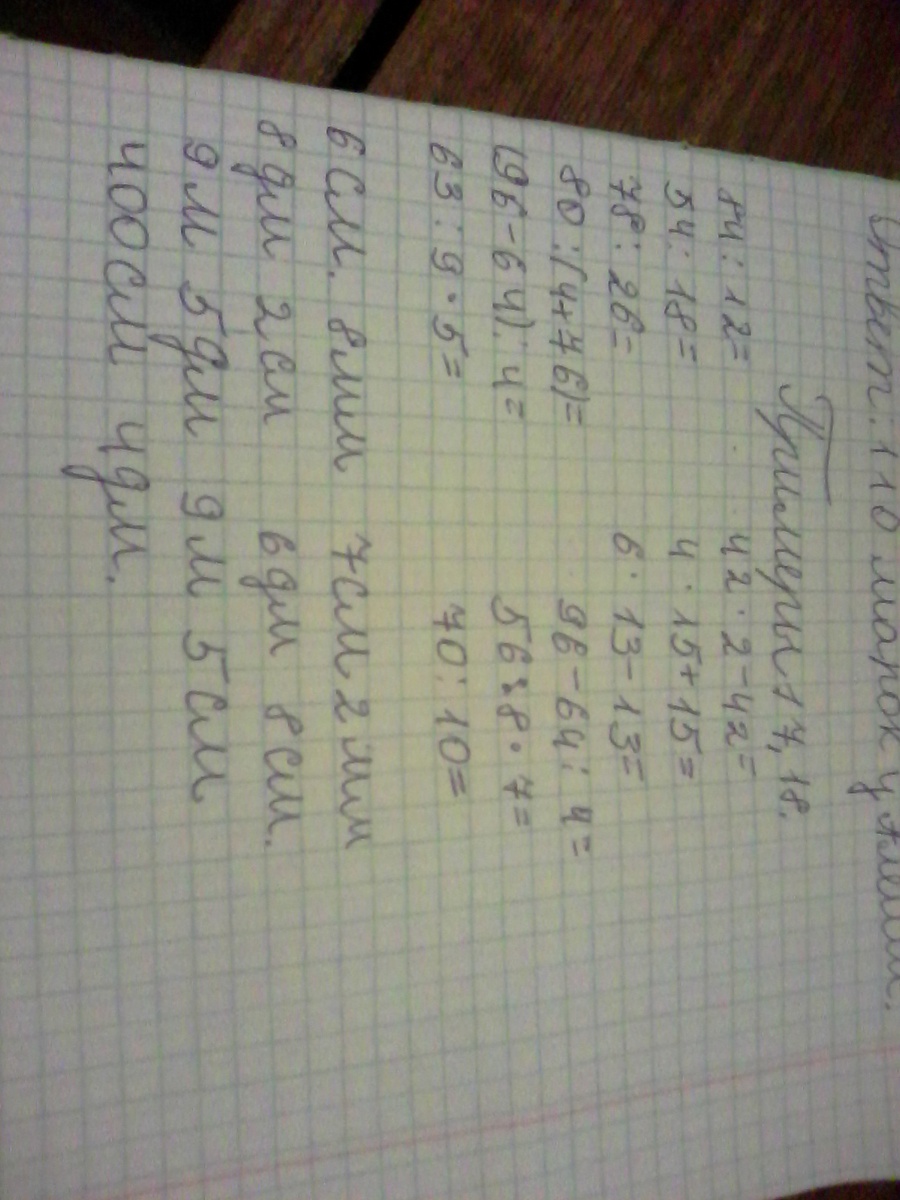 Ответ: 110 марок у Лены.
Примеры 17, 18.
84 : 12= 42 · 2-42=
54 : 18= 4 · 15+15=
78 : 26= 6 · 13-13=
80 : (4+76)= 96-64 : 4=
(96-64) : 4= 56 : 8 · 7=
63 : 9 · 5= 70 : 10=
6 см. 8мм 7см 2мм
8дм 2см 6дм 8см.
9м 5дм 9м 5см
400см 4дм.